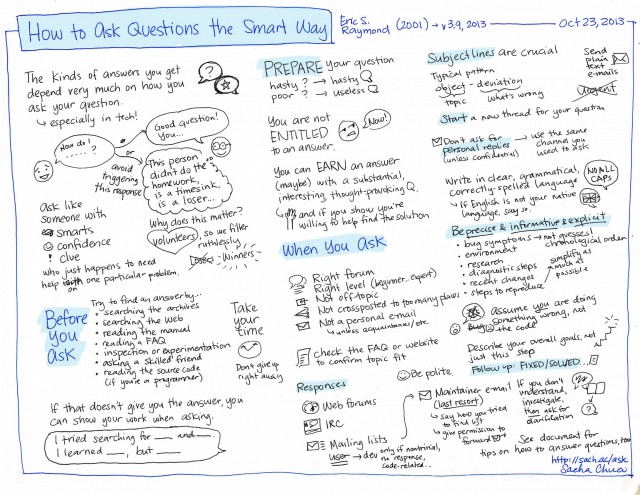 How to Ask Questions the Smart Way
Eric S.
Raymond (2001) → v3.9, 2013
Oct 23, 2013
The kinds of answers you get
depend very much on how you
ask your question.
↳ especially in tech!
How do I
.....?
or
Good question!
You...
avoid
triggering
this response
This person
didn't do the
homework,
is a timesink,
is a loser...
Ask like
someone with
smarts
confidence
! clue
who just happens to need
help with one particular problem.
Why does this matter?
volunteers, so we filter
ruthlessly
Losers
Winners
Before
you
ask
Try to find an answer by...
• searching the archives
• searching the web
• reading the manual
• reading a FAQ
• inspection or experimentation
• asking a skilled friend
• reading the source code
(if you're a programmer)
Take
your
time.
Don't give up
right away
If that doesn't give you the answer, you
can show your work when asking.
I tried searching for ___ and ___.
I learned ___, but ___
PREPARE your question
hasty ? → hasty
poor ? → useless
You are not
ENTITLED
to an answer.
Now!
You can EARN an answer
(maybe) with a substantial,
interesting, thought-provoking Q.
↳ and if you show you're
willing to help find the solution
When You Ask
Right forum
Right level (beginner...expert)
Not off topic
Not crossposted to too many places
Not a personal email
↳ unless acquaintances/etc.
Check the FAQ or website
to confirm topic fit
Be polite.
Responses
Web forums
IRC
Mailing lists
user → dev only if nontrivial,
no response,
code-related...
Maintainer e-mail
(last resort)
↳ say how you tried
to find list
↳ give permission to
forward
Subject lines are crucial
Typical pattern
object - deviation
topic
what's wrong
Send
plain
text
e-mails
Urgent
Start a new thread for your question
Don't ask for
personal replies
(unless confidential)
→ use the same
channel you
used to ask
Write in clear, grammatical,
correctly-spelled language
↳ If English is not your native
language, say so.
NO ALL
CAPS
Be precise & informative & explicit
• bug symptoms → not guesses!
chronological order
• environment
• research
• diagnostic steps
• recent changes
• steps to reproduce
simplify as
much as
possible
Assume you are doing
something wrong, not
the code
Bug
Describe your overall goals, not
just this step
Follow up: FIXED/SOLVED...
If you don't
understand,
investigate,
then ask for
clarification
See document for
tips on how to answer questions, too
http://sach.ac/ask
Sacha Chua